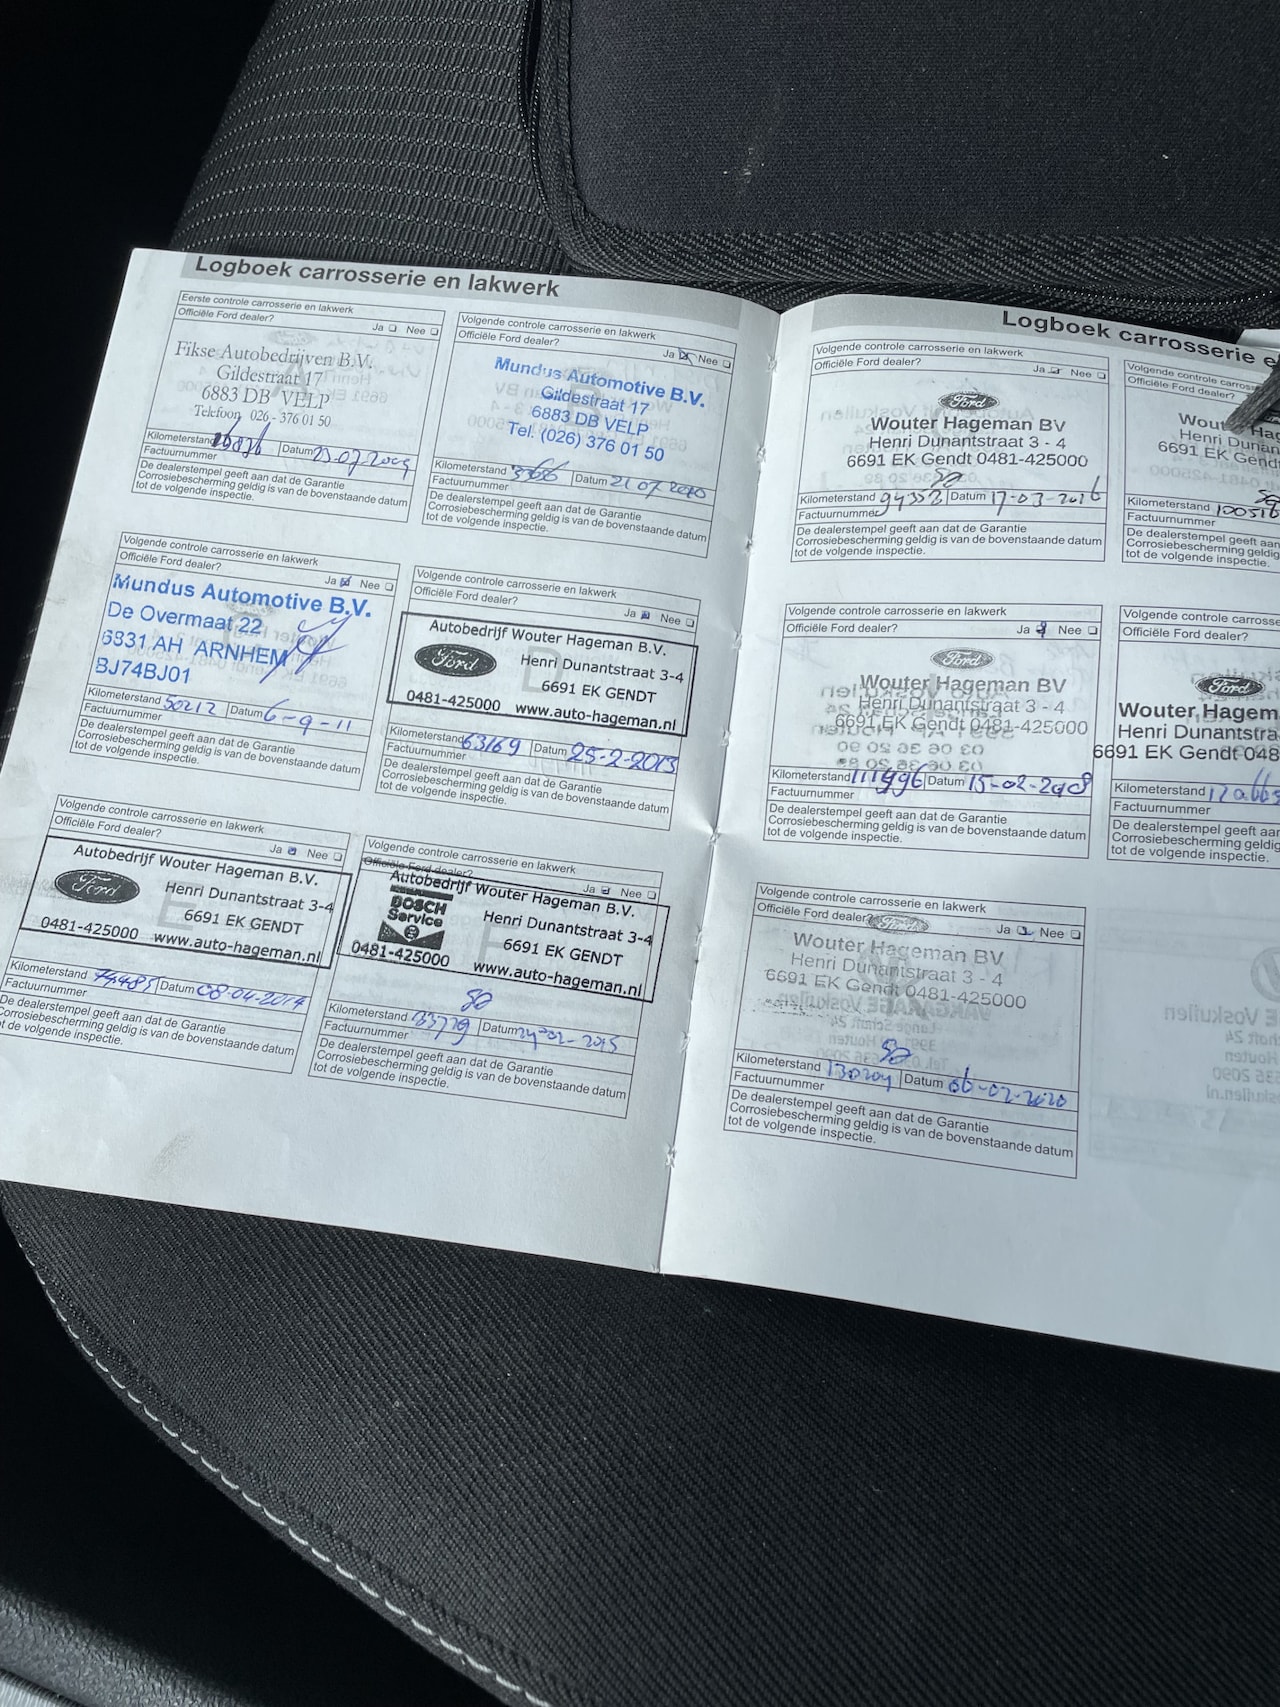 Logboek carrosserie en lakwerk
Eerste controle carrosserie en lakwerk
Officiële Ford dealer?
Ja Nee
Fikse Autobedrijven B.V.
Gildestraat 17
6883 DB VELP
Telefoon 026 - 376 01 50
Kilometerstand
Datum 23-07-2009
Factuurnummer
De dealerstempel geeft aan dat de Garantie
Corrosiebescherming geldig is van de bovenstaande datum
tot de volgende inspectie.
Volgende controle carrosserie en lakwerk
Officiële Ford dealer?
Ja Nee
Mundus Automotive B.V.
Gildestraat 17
6883 DB VELP
Tel. (026) 376 01 50
Kilometerstand Datum 21 07 2010
Factuurnummer
De dealerstempel geeft aan dat de Garantie
Corrosiebescherming geldig is van de bovenstaande datum
tot de volgende inspectie.
Volgende controle carrosserie en lakwerk
Officiële Ford dealer?
Ja Nee
Mundus Automotive B.V.
De Overmaat 22
6831 AH ARNHEM
BJ74BJ01
Kilometerstand 50212 Datum 6-9-11
Factuurnummer
De dealerstempel geeft aan dat de Garantie
Corrosiebescherming geldig is van de bovenstaande datum
tot de volgende inspectie.
Volgende controle carrosserie en lakwerk
Officiële Ford dealer?
Ja Nee
Autobedrijf Wouter Hageman B.V.
Ford
Henri Dunantstraat 3-4
6691 EK GENDT
0481-425000 www.auto-hageman.nl
Kilometerstand 63169 Datum 25-2-2013
Factuurnummer
De dealerstempel geeft aan dat de Garantie
Corrosiebescherming geldig is van de bovenstaande datum
tot de volgende inspectie.
Volgende controle carrosserie en lakwerk
Officiële Ford dealer?
Ja Nee
Autobedrijf Wouter Hageman B.V.
Ford
Henri Dunantstraat 3-4
6691 EK GENDT
0481-425000 www.auto-hageman.nl
Kilometerstand 74485 Datum 08-04-2014
Factuurnummer
De dealerstempel geeft aan dat de Garantie
Corrosiebescherming geldig is van de bovenstaande datum
tot de volgende inspectie.
Volgende controle carrosserie en lakwerk
Officiële Ford dealer?
Ja Nee
Autobedrijf Wouter Hageman B.V.
BOSCH
Service
Henri Dunantstraat 3-4
6691 EK GENDT
0481-425000 www.auto-hageman.nl
Kilometerstand Datum 24-02-2015
Factuurnummer
De dealerstempel geeft aan dat de Garantie
Corrosiebescherming geldig is van de bovenstaande datum
tot de volgende inspectie.
Logboek carrosserie e
Volgende controle carrosserie en lakwerk
Officiële Ford dealer?
Ja Nee
Ford
Wouter Hageman BV
Henri Dunantstraat 3 - 4
6691 EK Gendt 0481-425000
Kilometerstand 94353 Datum 17-03-2016
Factuurnummer
De dealerstempel geeft aan dat de Garantie
Corrosiebescherming geldig is van de bovenstaande datum
tot de volgende inspectie.
Volgende controle carros
Officiële Ford dealer?
Henri Dunan
6691 EK Gend
Kilometerstand 100516
Factuurnummer
De dealerstempel geeft aan
Corrosiebescherming geldig
tot de volgende inspectie.
Volgende controle carrosserie en lakwerk
Officiële Ford dealer?
Ja Nee
Ford
Wouter Hageman BV
Henri Dunantstraat 3 - 4
6691 EK Gendt 0481-425000
Kilometerstand 111996 Datum 15-02-2018
Factuurnummer
De dealerstempel geeft aan dat de Garantie
Corrosiebescherming geldig is van de bovenstaande datum
tot de volgende inspectie.
Volgende controle carrosse
Officiële Ford dealer?
Ford
Wouter Hagem
Henri Dunantstra
6691 EK Gendt 048
Kilometerstand
Factuurnummer
De dealerstempel geeft aa
Corrosiebescherming geldig
tot de volgende inspectie.
Volgende controle carrosserie en lakwerk
Officiële Ford dealer?
Ja Nee
Wouter Hageman BV
Henri Dunantstraat 3 - 4
6691 EK Gendt 0481-425000
Kilometerstand 130204 Datum 06-02-2020
Factuurnummer
De dealerstempel geeft aan dat de Garantie
Corrosiebescherming geldig is van de bovenstaande datum
tot de volgende inspectie.